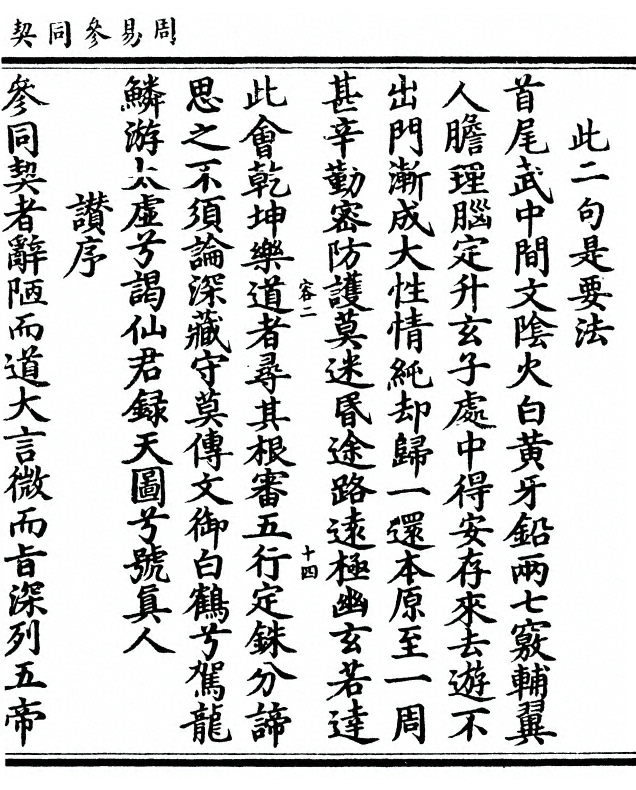 周易參同契
此二句是要法
首尾武中間文陰火白黃牙鉛兩七竅輔翼
人膽理腦定升玄子處中得安存來去遊不
出門漸成大性情純却歸一還本原至一周
甚辛勤密防護莫迷昏途路遠極幽玄若達
容二
十四
此會乾坤樂道者尋其根審五行定銖分諦
思之不須論深藏守莫傳文御白鶴兮駕龍
鱗游太虛兮謁仙君録天圖兮號真人
讃序
參同契者辭陋而道大言微而旨深列五帝